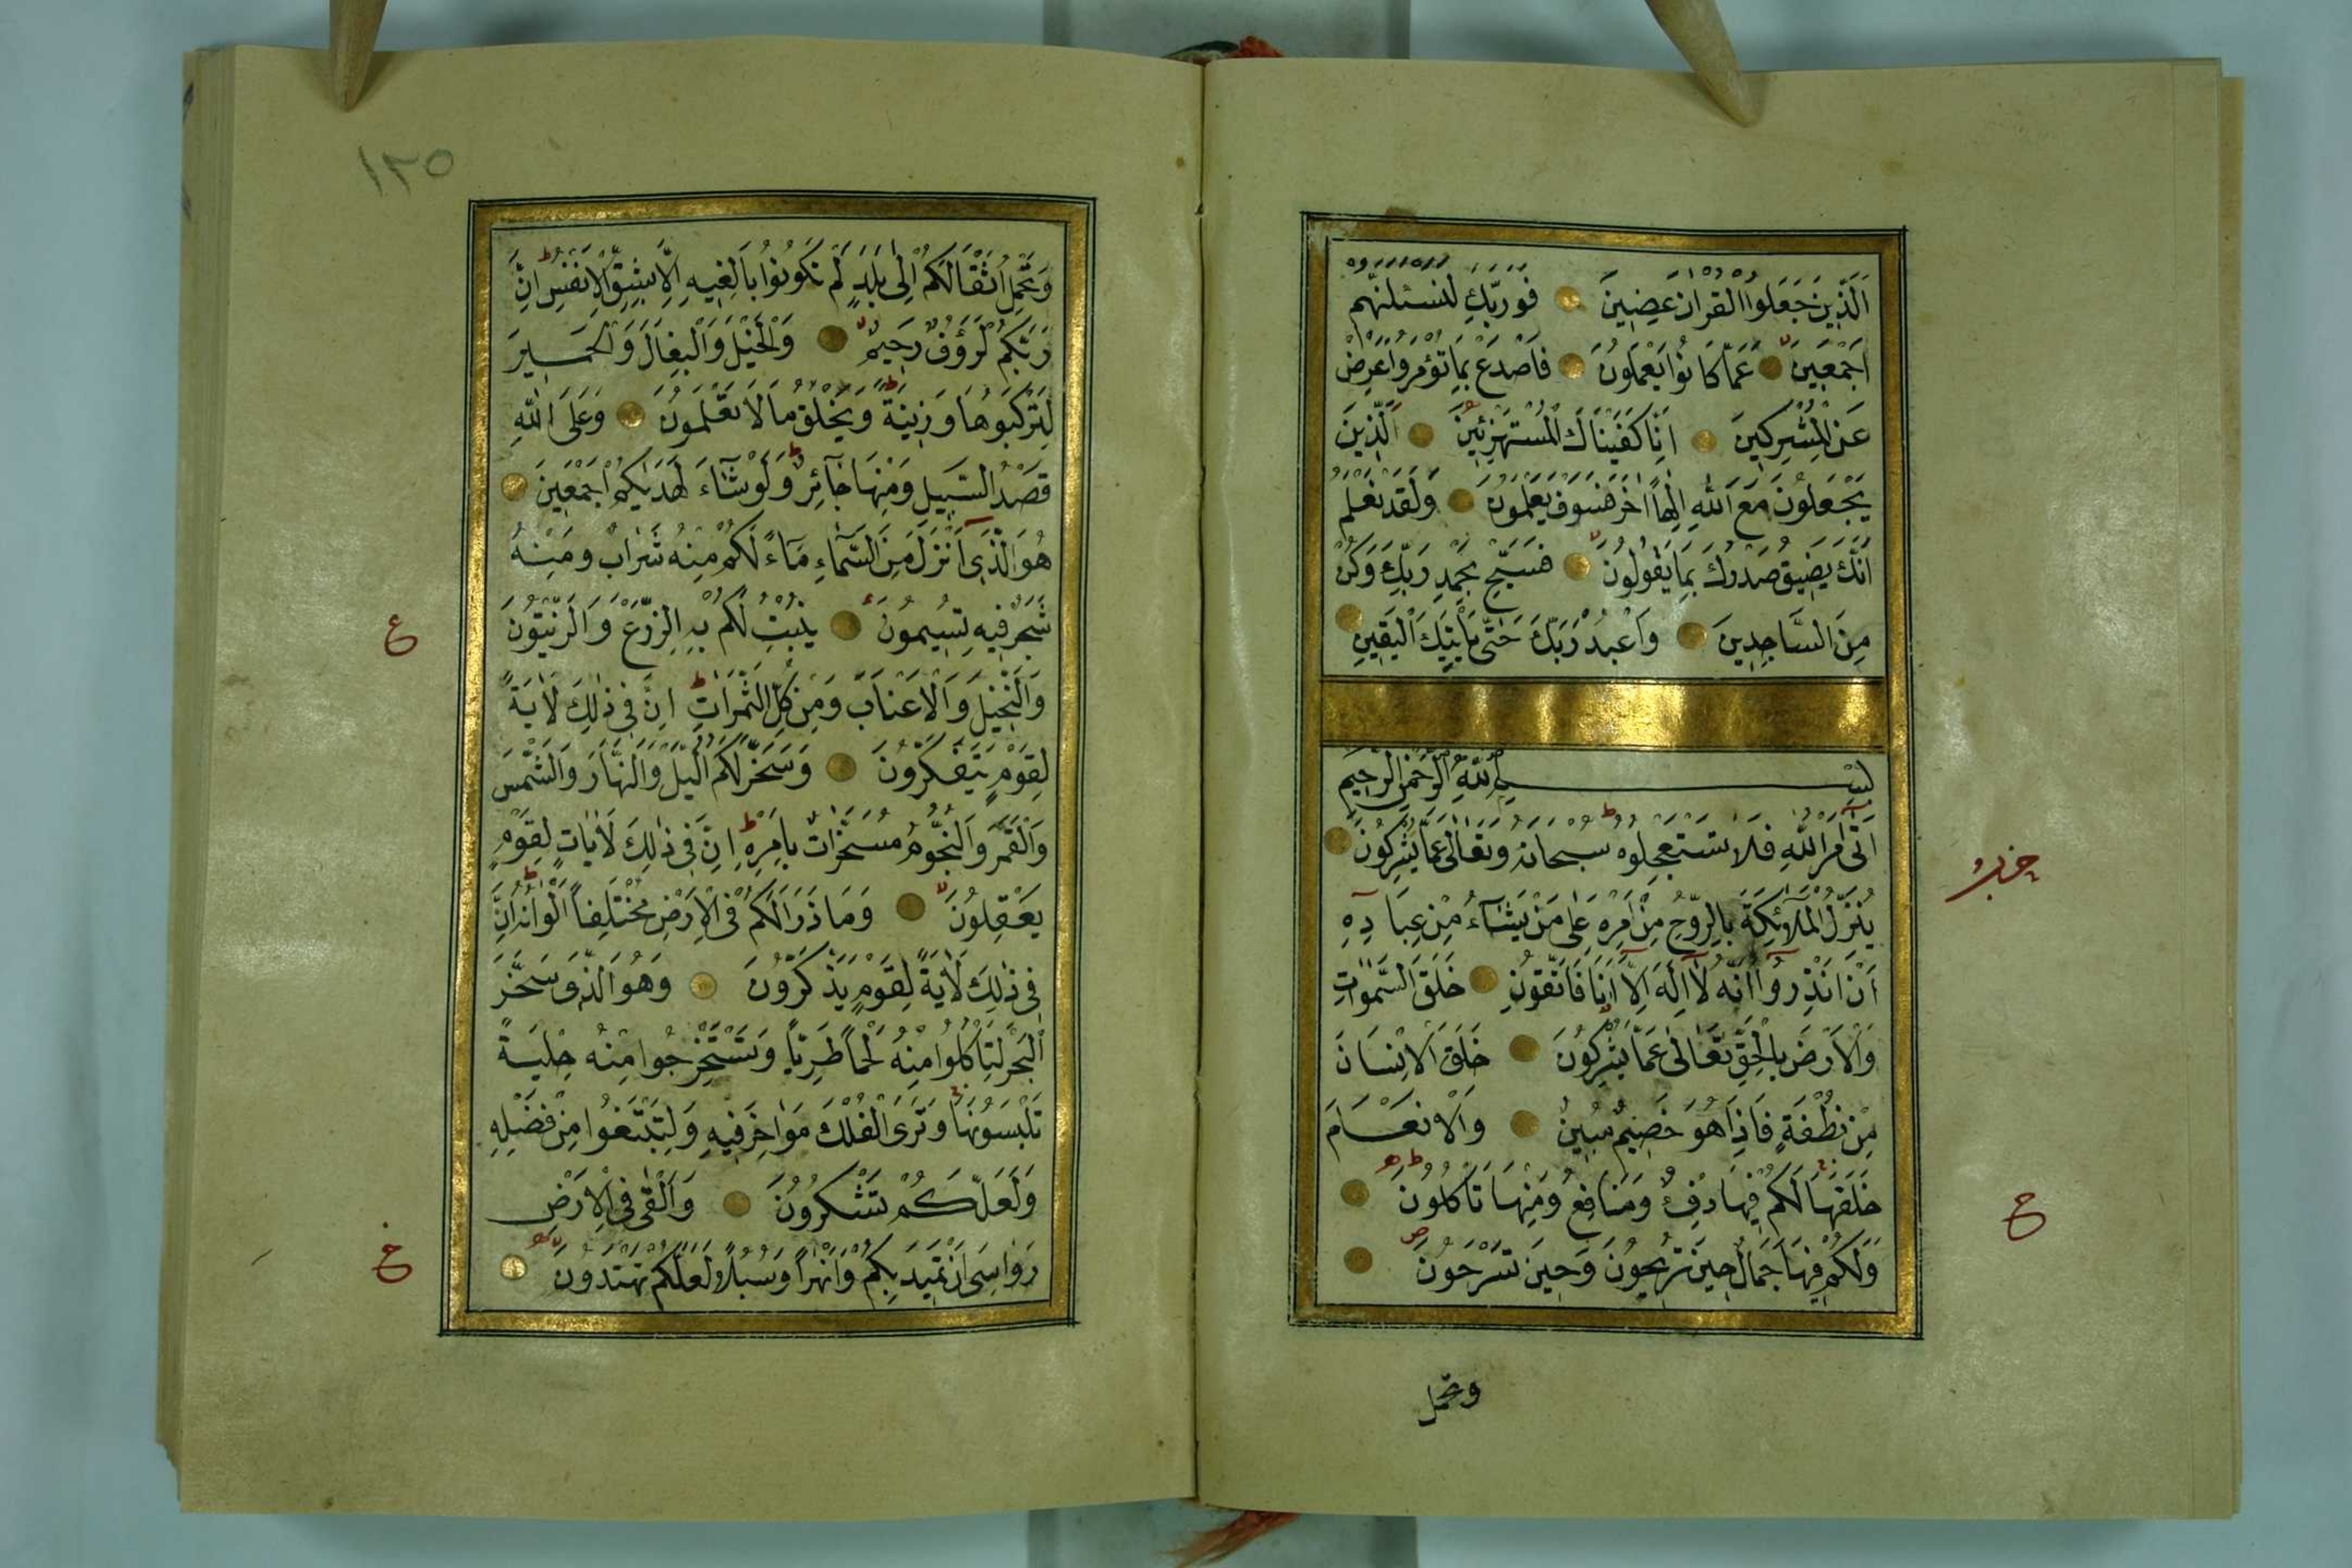 اَلَّذِينَ جَعَلُوا الْقُرْاٰنَ عِضِينَ فَوَرَبِّكَ لَنَسْئَلَنَّهُمْ
اَجْمَعِينَ عَمَّا كَانُوا يَعْمَلُونَ فَاصْدَعْ بِمَا تُؤْمَرُ وَاَعْرِضْ
عَنِ الْمُشْرِكِينَ اِنَّا كَفَيْنَاكَ الْمُسْتَهْزِئِينَ اَلَّذِينَ
يَجْعَلُونَ مَعَ اللّٰهِ اِلٰهاً اٰخَرَ فَسَوْفَ يَعْلَمُونَ وَلَقَدْ نَعْلَمُ
اَنَّكَ يَضِيقُ صَدْرُكَ بِمَا يَقُولُونَ فَسَبِّحْ بِحَمْدِ رَبِّكَ وَكُنْ
مِنَ السَّاجِدِينَ وَاعْبُدْ رَبَّكَ حَتّٰى يَأْتِيَكَ الْيَقِينُ
بِسْمِ اللّٰهِ الرَّحْمٰنِ الرَّحِيمِ
اَتٰى اَمْرُ اللّٰهِ فَلَا تَسْتَعْجِلُوهُ سُبْحَانَهُ وَتَعَالٰى عَمَّا يُشْرِكُونَ
يُنَزِّلُ الْمَلَآئِكَةَ بِالرُّوحِ مِنْ اَمْرِهِ عَلٰى مَنْ يَشَآءُ مِنْ عِبَادِهِ
اَنْ اَنْذِرُوا اَنَّهُ لَا اِلٰهَ اِلَّا اَنَا فَاتَّقُونِ خَلَقَ السَّمٰوَاتِ
وَالْاَرْضَ بِالْحَقِّ تَعَالٰى عَمَّا يُشْرِكُونَ خَلَقَ الْاِنْسَانَ
مِنْ نُطْفَةٍ فَاِذَا هُوَ خَصِيمٌ مُبِينٌ وَالْاَنْعَامَ
خَلَقَهَا لَكُمْ فِيهَا دِفْءٌ وَمَنَافِعُ وَمِنْهَا تَأْكُلُونَ
وَلَكُمْ فِيهَا جَمَالٌ حِينَ تُرِيحُونَ وَحِينَ تَسْرَحُونَ
وتحمل
حزب
ح
١٢٥
وَتَحْمِلُ اَثْقَالَكُمْ اِلٰى بَلَدٍ لَمْ تَكُونُوا بَالِغِيهِ اِلَّا بِشِقِّ الْاَنْفُسِ اِنَّ
رَبَّكُمْ لَرَؤُفٌ رَحِيمٌ وَالْخَيْلَ وَالْبِغَالَ وَالْحَمِيرَ
لِتَرْكَبُوهَا وَزِينَةً وَيَخْلُقُ مَا لَا تَعْلَمُونَ وَعَلَى اللّٰهِ
قَصْدُ السَّبِيلِ وَمِنْهَا جَآئِرٌ وَلَوْ شَآءَ لَهَدٰيكُمْ اَجْمَعِينَ
هُوَ الَّذِى اَنْزَلَ مِنَ السَّمَآءِ مَآءً لَكُمْ مِنْهُ شَرَابٌ وَمِنْهُ
شَجَرٌ فِيهِ تُسِيمُونَ يُنْبِتُ لَكُمْ بِهِ الزَّرْعَ وَالزَّيْتُونَ
وَالنَّخِيلَ وَالْاَعْنَابَ وَمِنْ كُلِّ الثَّمَرَاتِ اِنَّ فِى ذٰلِكَ لَاٰيَةً
لِقَوْمٍ يَتَفَكَّرُونَ وَسَخَّرَ لَكُمُ الَّيْلَ وَالنَّهَارَ وَالشَّمْسَ
وَالْقَمَرَ وَالنُّجُومُ مُسَخَّرَاتٌ بِاَمْرِهِ اِنَّ فِى ذٰلِكَ لَاٰيَاتٍ لِقَوْمٍ
يَعْقِلُونَ وَمَا ذَرَاَ لَكُمْ فِى الْاَرْضِ مُخْتَلِفاً اَلْوَانُهُ اِنَّ
فِى ذٰلِكَ لَاٰيَةً لِقَوْمٍ يَذَّكَّرُونَ وَهُوَ الَّذِى سَخَّرَ
الْبَحْرَ لِتَأْكُلُوا مِنْهُ لَحْماً طَرِيًّا وَتَسْتَخْرِجُوا مِنْهُ حِلْيَةً
تَلْبَسُونَهَا وَتَرَى الْفُلْكَ مَوَاخِرَ فِيهِ وَلِتَبْتَغُوا مِنْ فَضْلِهِ
وَلَعَلَّكُمْ تَشْكُرُونَ وَاَلْقٰى فِى الْاَرْضِ
رَوَاسِىَ اَنْ تَمِيدَ بِكُمْ وَاَنْهَاراً وَسُبُلاً لَعَلَّكُمْ تَهْتَدُونَ
ع